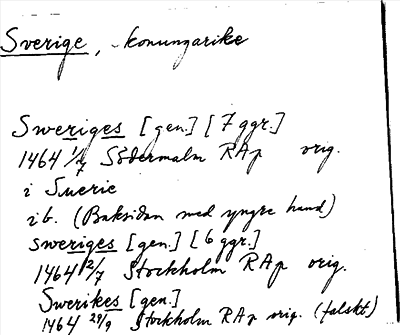 Sverige, -konungarike
Sweriges [gen.] [7 ggr.]
1464 1/7 Södermalm RAp orig.
i Suerie
ib. (Baksidan med yngre hand)
sweriges [gen.] [6 ggr.]
1464 2/7 Stockholm RAp orig.
Swerikes [gen.]
1464 29/9 Stockholm RAp orig. (falskt)